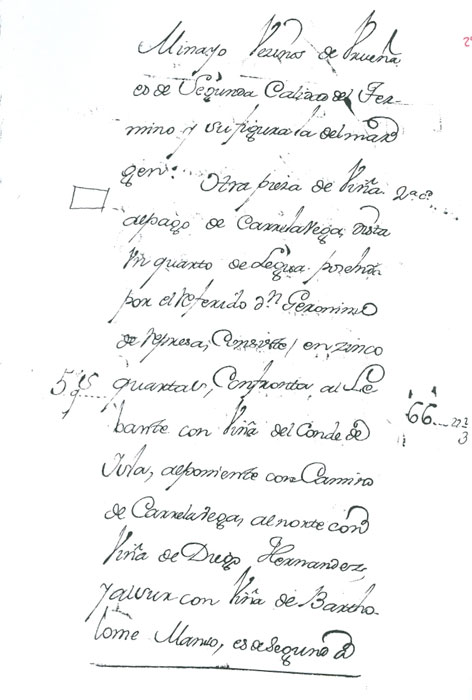 Minayo Vezinos de Vrueña
es de Segunda Calidad del Ter-
mino y su figura la del mar
gen: Otra pieza de Viña 2ª cª
al pago de Carrelavega dista
Vn quarto de Legua
por el referido Dn Geronimo
de Represa, Consiste en zinco
5 qs quartas, Confronta al Le
66 bante con Viña del Conde de
al poniente con Camino
de Carrelavega, al norte con
Viña de Diego Hernandez
y al sur con Viña de Bartho-
lome Manso, es de Segunda